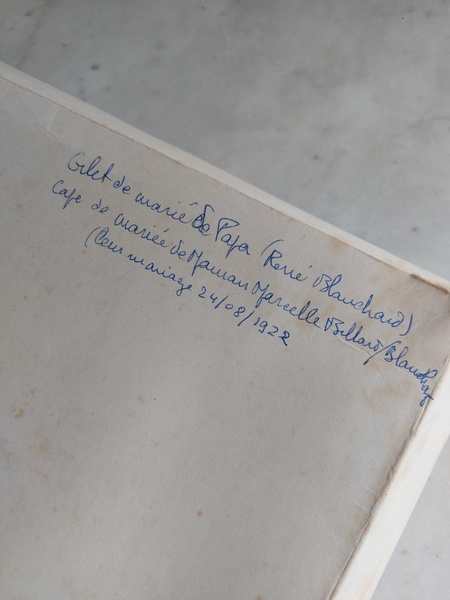 Gilet de marié de Papa (René Blanchard)
Cape de mariée de Maman Marcelle Billard/Blanchard
(Leur mariage 24/08/1922